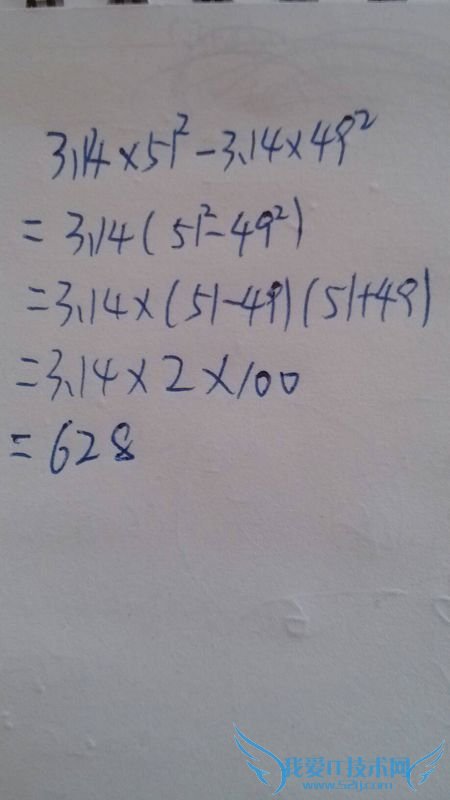 3.14×51²-3.14×49²
=3.14(51²-49²)
=3.14×(51-49)(51+49)
=3.14×2×100
=628
我爱IT技术网
www.52ij.com